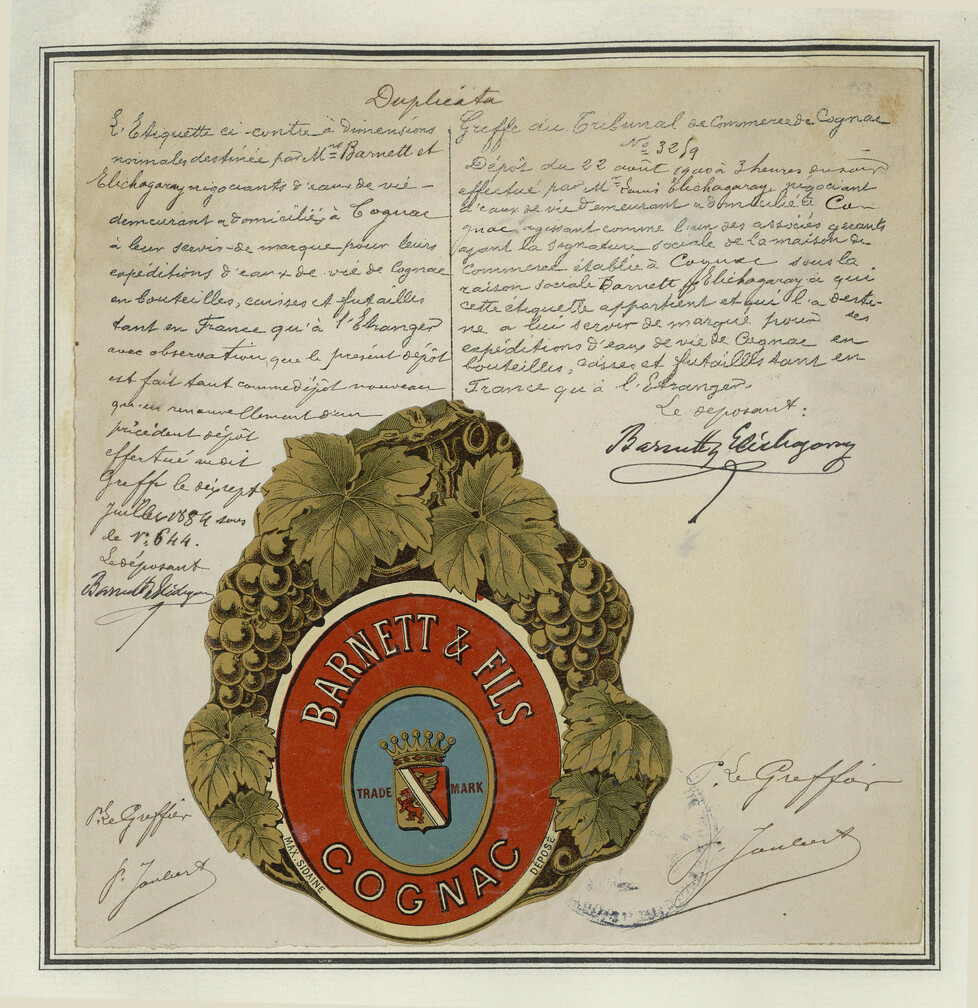 Duplicata
L'Etiquette ci-contre à dimensions
normales destinée par Mrs Barnett et
Elichagaray negociants d'eaux de vie -
demeurant & domiciliés à Cognac
à leur servir de marque pour leurs
expéditions d'eaux de vie de Cognac
en bouteilles, caisses et futailles
tant en France qu'à l'Etranger
avec observation que le présent dépôt
est fait tant comme dépôt nouveau
qu'en renouvellement d'un
précédent dépôt
effectué audit
Greffe le dixsept
Juillet 1884 sous
le No 644.
Le déposant
Barnett & Elichagaray
Greffe du Tribunal de Commerce de Cognac
No 3219
Dépôt du 22 août 1900 à 3 heures du soir
effectué par Mr Louis Elichagaray, négociant
d'eaux de vie demeurant & domicilié à Co-
gnac agissant comme l'un des associés gérants
ayant la signature sociale de la maison de
Commerce établie à Cognac sous la
raison sociale Barnett & Elichagaray à qui
cette étiquette appartient et qui l'a desti-
née à lui servir de marque pour ses
expéditions d'eaux de vie de Cognac en
bouteilles, caisses et futailles tant en
France qu'à l'Etranger.
Le déposant:
Barnett & Elichagaray
BARNETT & FILS
TRADE MARK
COGNAC
MAX. SIDAINE
DÉPOSÉ
P. Le Greffier
P. Le Greffier